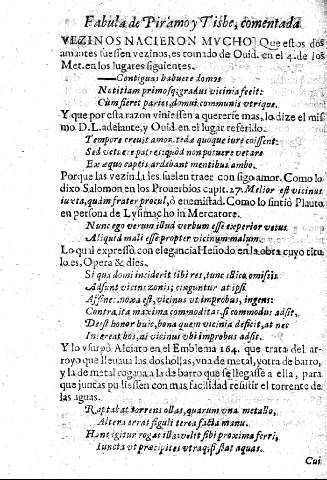 Fabula de Piramo y Tisbe, comentada
VEZINOS NACIERON MVCHO] Que estos dos
amantes fuessen vezinos, es tomado de Ouid. en el 4. de los
Met. en los lugares siguientes.
——Contiguas habuere domos
Notitiam primosq; gradus vicinia fecit:
Cum fieret paries, domui communis vtrique.
Y que por esta razon viniessen a quererse mas, lo dize el mis
mo D.L. adelante, y Ouid. en el lugar referido.
Tempore creuit amor, tedæ quoque iure coissent:
Sed vetuere patres; quod non potuere vetare
Ex æquo captis ardebant mentibus ambo.
Porque las vezindades suelen traer consigo amor. Como lo
dixo Salomon en los Prouerbios capit. 27. Melior est vicinus
iuxta, quàm frater procul, ò enemistad. Como lo sintiò Plauto
en persona de Lysimacho in Mercatore.
Nunc ego verum illud verbum esse experior vetus
Aliquid mali esse propter vicinum malum.
Lo qual expressò con elegancia Hesiodo en la obra cuyo titu
lo es, Opera & dies.
Si quid domi inciderit tibi res, tunc ilico omissis
Adsunt vicini zonis; cinguntur at ipsi
Affines: noxa est, vicinus vt improbus, ingens:
Contra ita maxima commoditas, si commodus adsit.
Deest honor huic, bona quem vicinia deficit, at nec
Intereat bos, ni vicinus vbi improbus adsit.
Y lo vsurpò Alciato en el Emblema 164. que trata del ar-
royo que lleuaua las dos hollas, vna de metal, y otra de barro,
y la de metal rogaua a la de barro que se llegasse a ella, para
que juntas pudiessen con mas facilidad resistir el torrente de
las aguas.
Raptabat torrens ollas, quarum vna metallo,
Altera erat figuli terea facta manu.
Hanc igitur rogat illa: velit sibi proxima ferri,
Iuncta vt præcipites vtraq; sistat aquas.
Cui